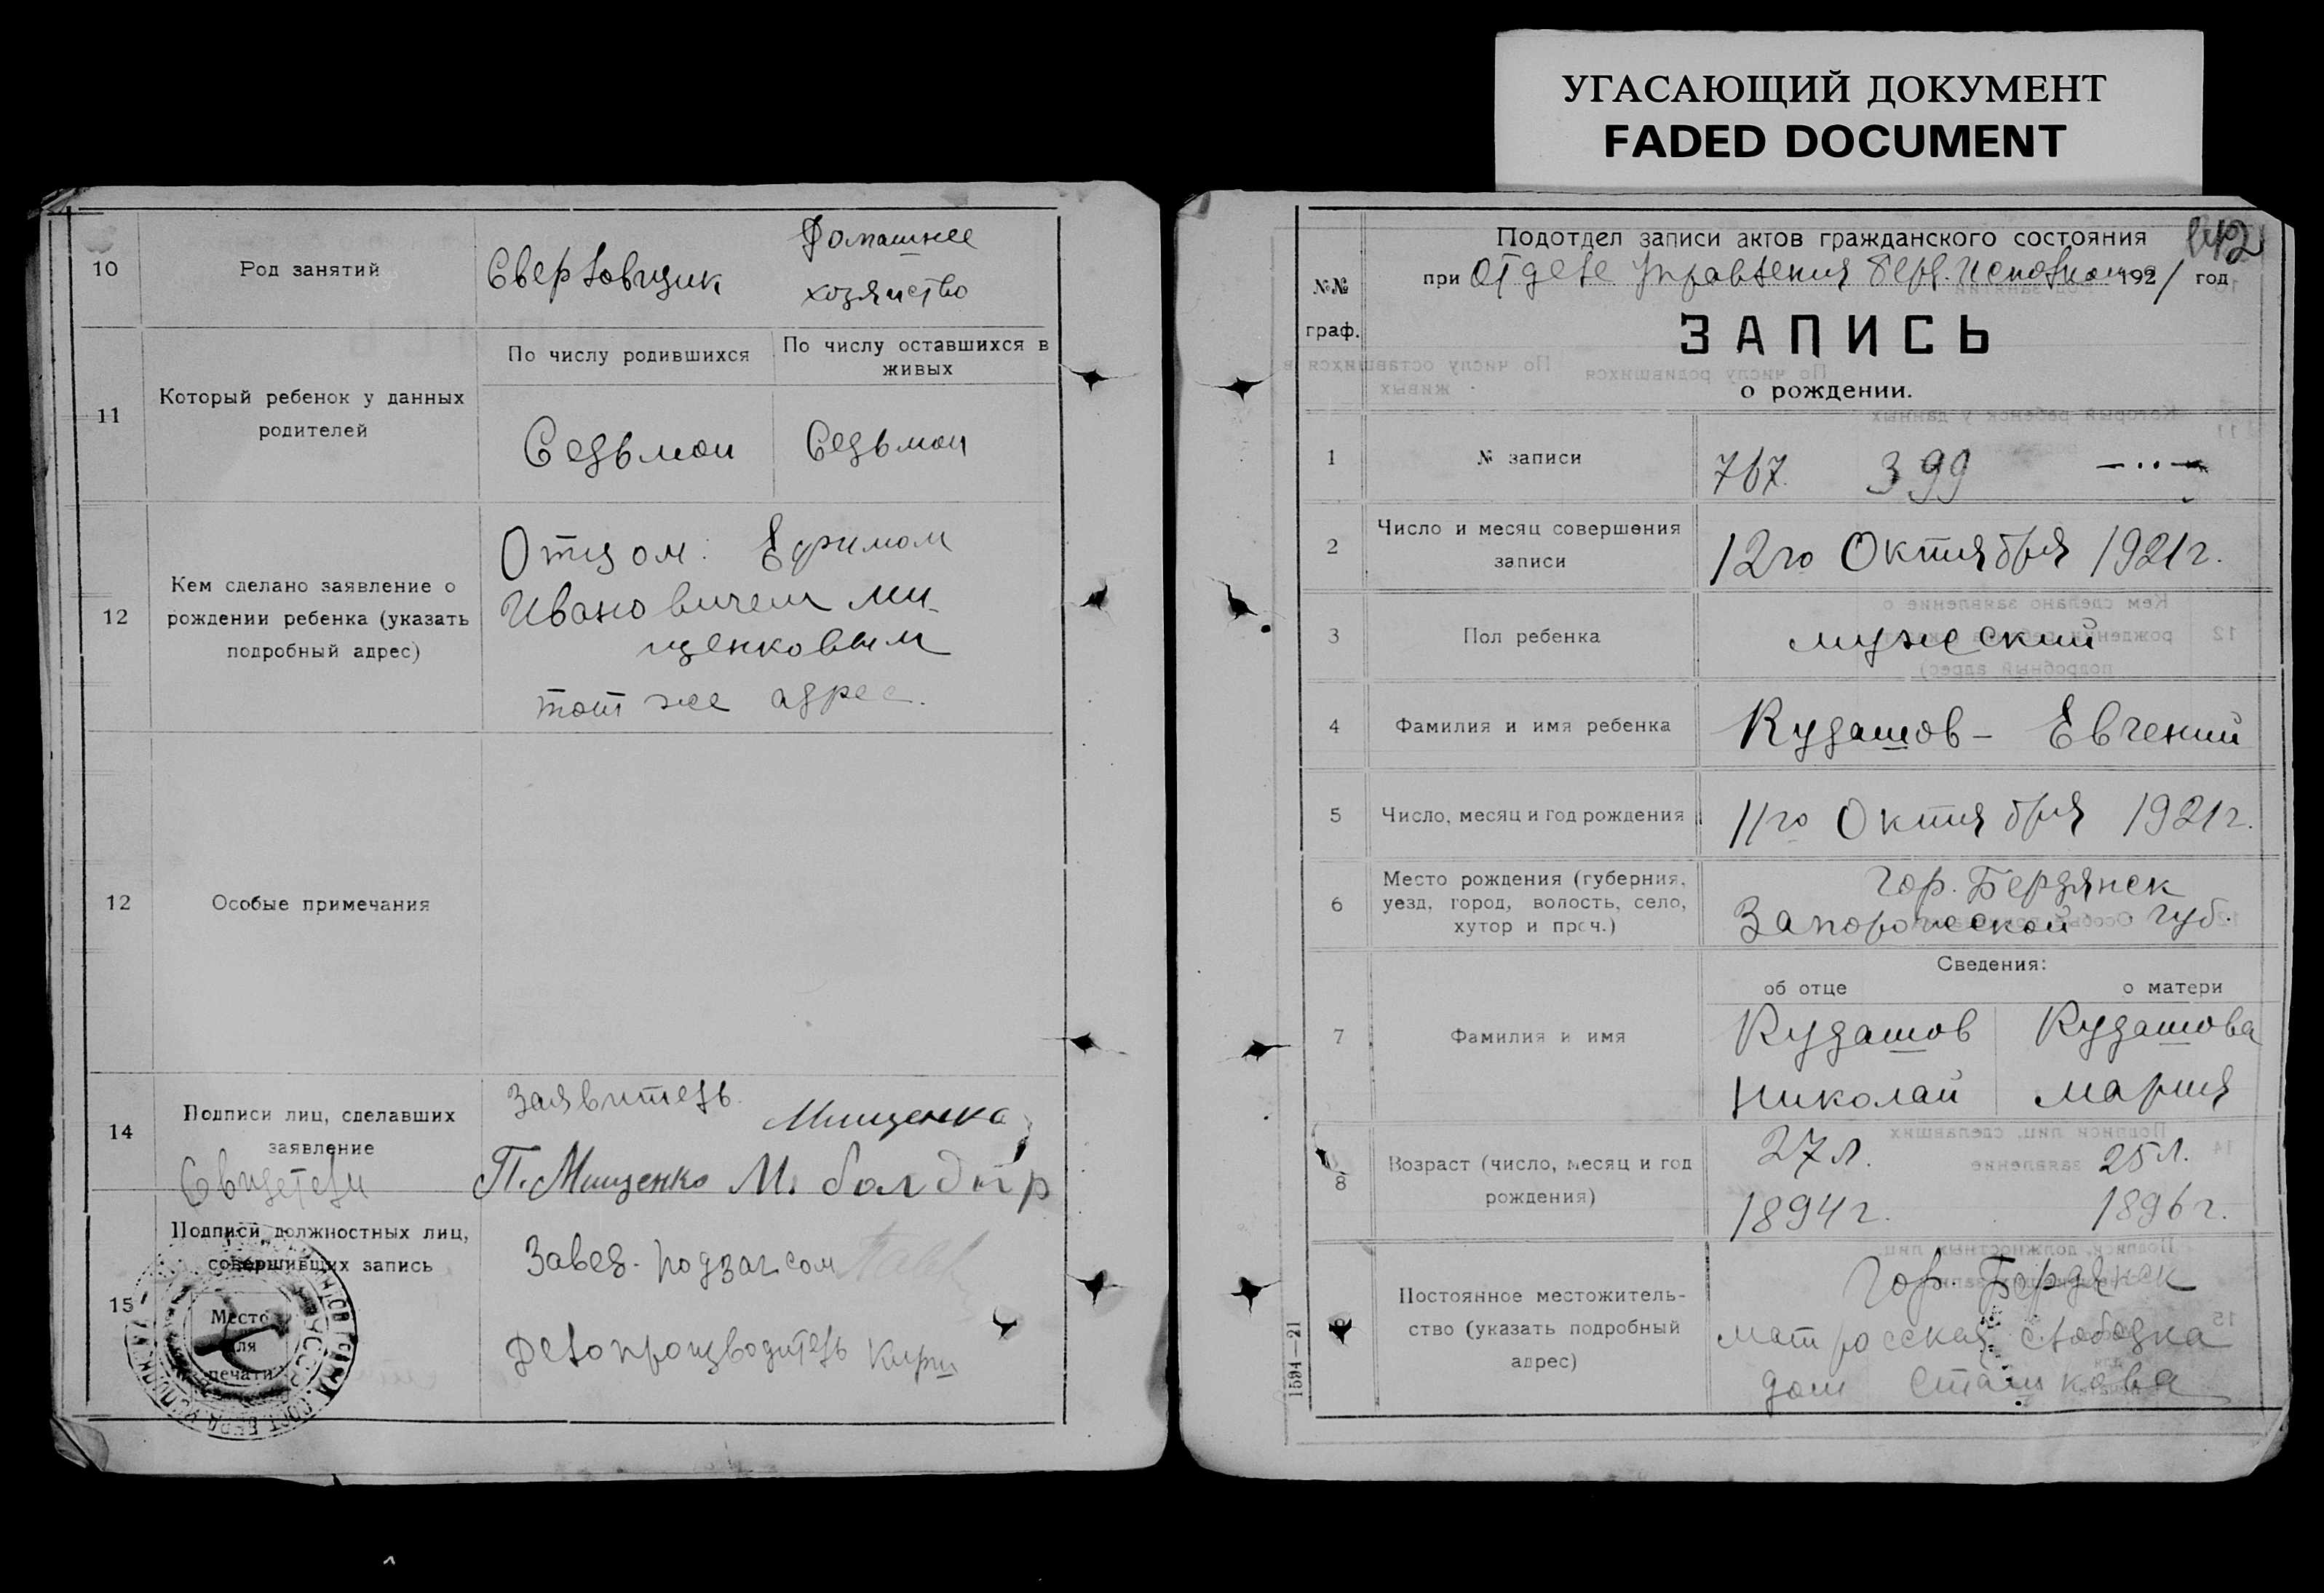 УГАСАЮЩИЙ ДОКУМЕНТ
FADED DOCUMENT
10 Род занятий Сверловщик Домашнее хозяйство
11 Который ребенок у данных родителей
По числу родившихся По числу оставшихся в живых
Седьмой Седьмой
12 Кем сделано заявление о рождении ребенка (указать подробный адрес)
Отцом: Ефимом
Ивановичем Ми-
щенковым
тот же адрес.
12 Особые примечания
14 Подписи лиц, сделавших заявление
Заявитель Мищенко
Свидетели П. Мищенко М. болдыр
15 Подписи должностных лиц, совершивших запись
Завед. подзагсом
Делопроизводитель
Место для печати
42
Подотдел записи актов гражданского состояния
при Отделе Управления Берд. Исполкома 1921 год
№№ граф.
ЗАПИСЬ
о рождении.
1 № записи 767. 399
2 Число и месяц совершения записи 12го Октября 1921г.
3 Пол ребенка мужеский
4 Фамилия и имя ребенка Кудашов - Евгений
5 Число, месяц и год рождения 11го Октября 1921г.
6 Место рождения (губерния, уезд, город, волость, село, хутор и проч.)
Гор. Бердянск
Запорожской губ.
Сведения:
об отце о матери
7 Фамилия и имя
Кудашов Кудашова
Николай Мария
8 Возраст (число, месяц и год рождения)
27 л. 25 л.
1894 г. 1896 г.
9 Постоянное местожительство (указать подробный адрес)
Гор. Бердянск
матросская слободка
дом Сташкова
1594—21